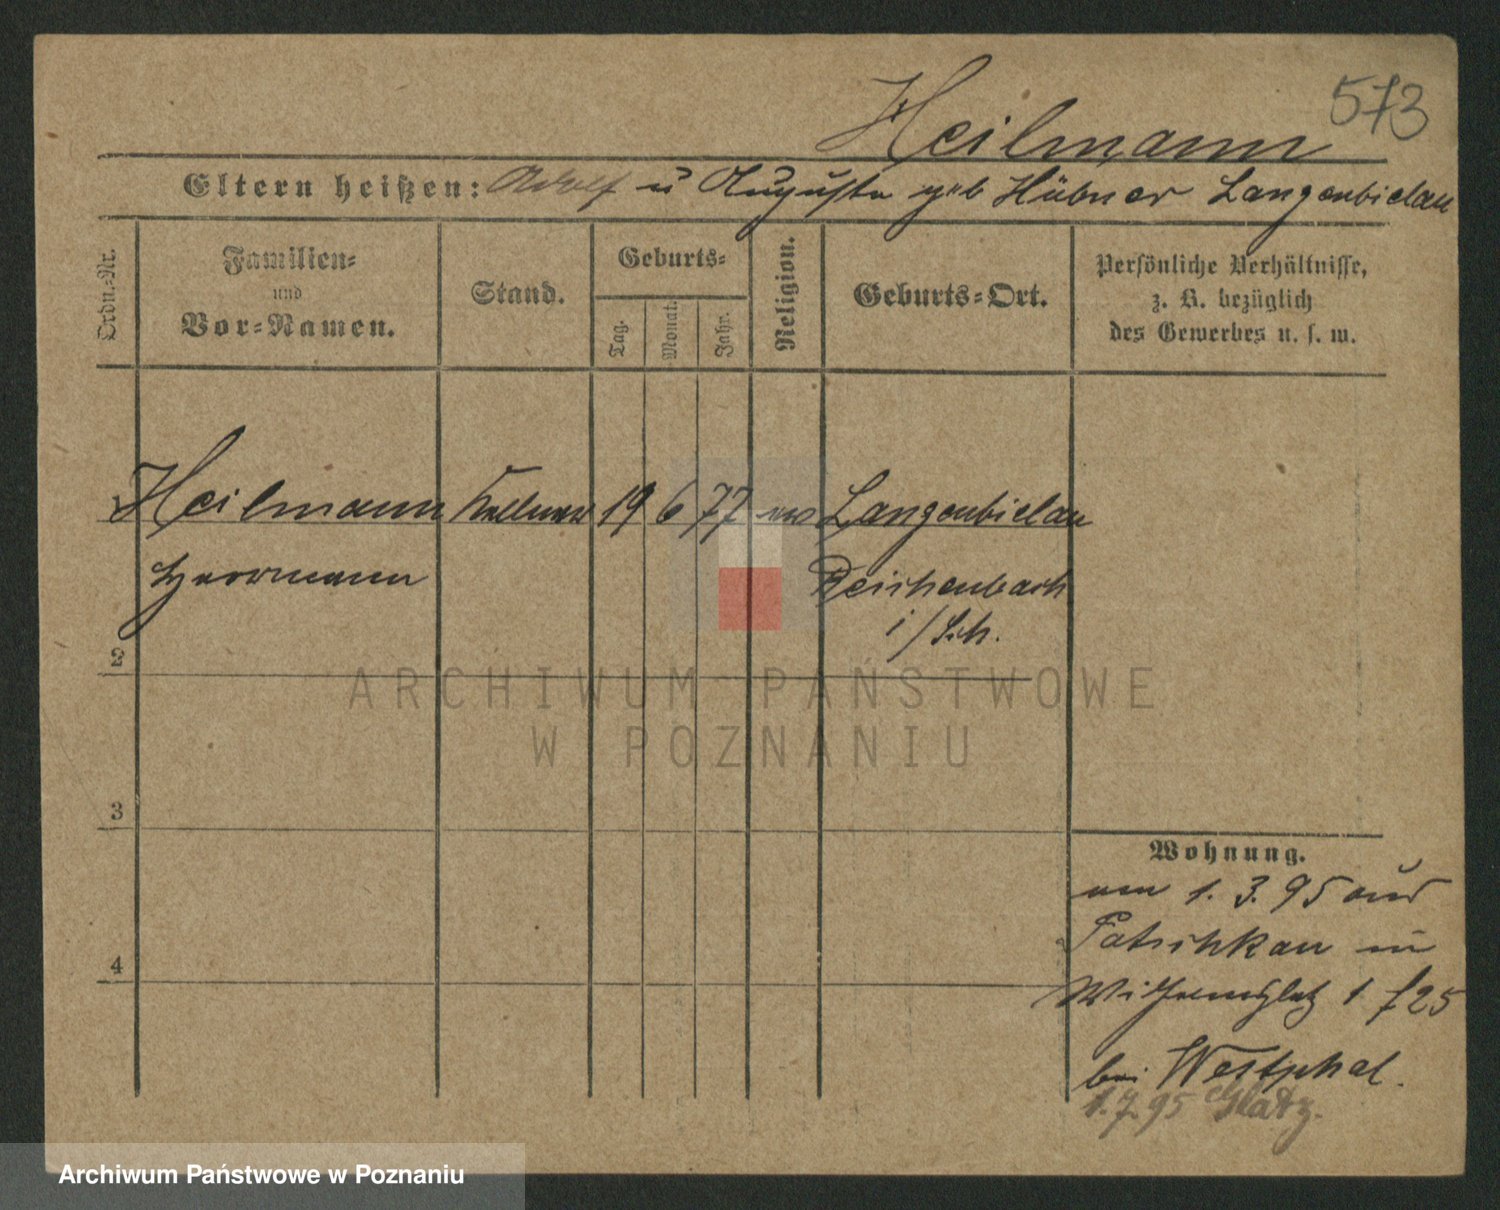 573
Heilmann
Eltern heißen: Adolf u Auguste geb Hübner Langenbielau
Ordn.-Nr.
Familien-
und
Vor-Namen.
Stand.
Geburts-
Tag.
Monat.
Jahr.
Religion.
Geburts-Ort.
Persönliche Verhältnisse,
z. B. bezüglich
des Gewerbes u. s. w.
Heilmann Kellner 19 6 77 ev Langenbielau
Herrmann Reichenbach
i/Sch.
2
ARCHIWUM PAŃSTWOWE
W POZNANIU
3
4
Wohnung.
am 1. 3. 95 aus
Patschkau in
Wilhemsplatz 1 f 25
bei Westphal.
1.7.95 Glatz.
Archiwum Państwowe w Poznaniu